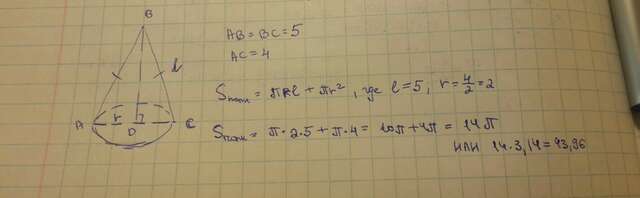 B
l
A
r
D
C
AB = BC = 5
AC = 4
Sполн = πRl + πr², где l = 5, r = 4/2 = 2
Sполн = π·2·5 + π·4 = 10π + 4π = 14π
или 14·3,14 = 43,96